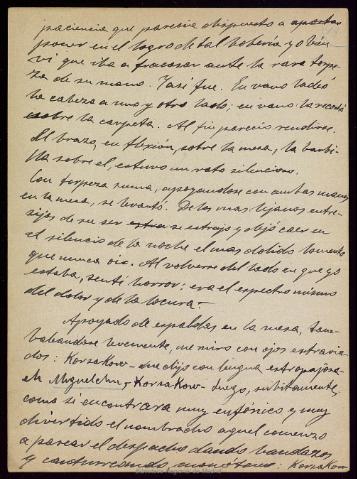 paciencia que parecía dispuesto a
pero en el logro de tal bobería y o bien
vi que iba a fracasar ante la rara torpe-
za de su mano. Y así fue. En vano ladeó
la cabeza a uno y otro lado; en vano la recostó
sobre la carpeta. Al fin pareció rendirse.
El brazo, en flexión, sobre la mesa, la barbi-
lla sobre el, estuvo un rato silencioso.
Con torpeza suma, apoyandose con ambas manos
en la mesa, se levantó. De los mas lejanos entre-
sijos de su ser extrajo y dejó caer en
el silencio de la noche el mas dolido lamento
que nunca oi. Al volverse del lado en que yo
estaba, sentí horror: era el espectro mismo
del dolor y de la locura.-
Apoyado de espaldas en la mesa, tam-
baleandose levemente, me miro con ojos extravia-
dos: Korzakow- me dijo con lengua estropajosa
Miguelin, Korzakow- Luego, subitamente,
como si encontrara muy eufónico y muy
divertido el nombracho aquel comenzo
a pasear el despacho dando bandazos
y canturreando monotono: Korzakow